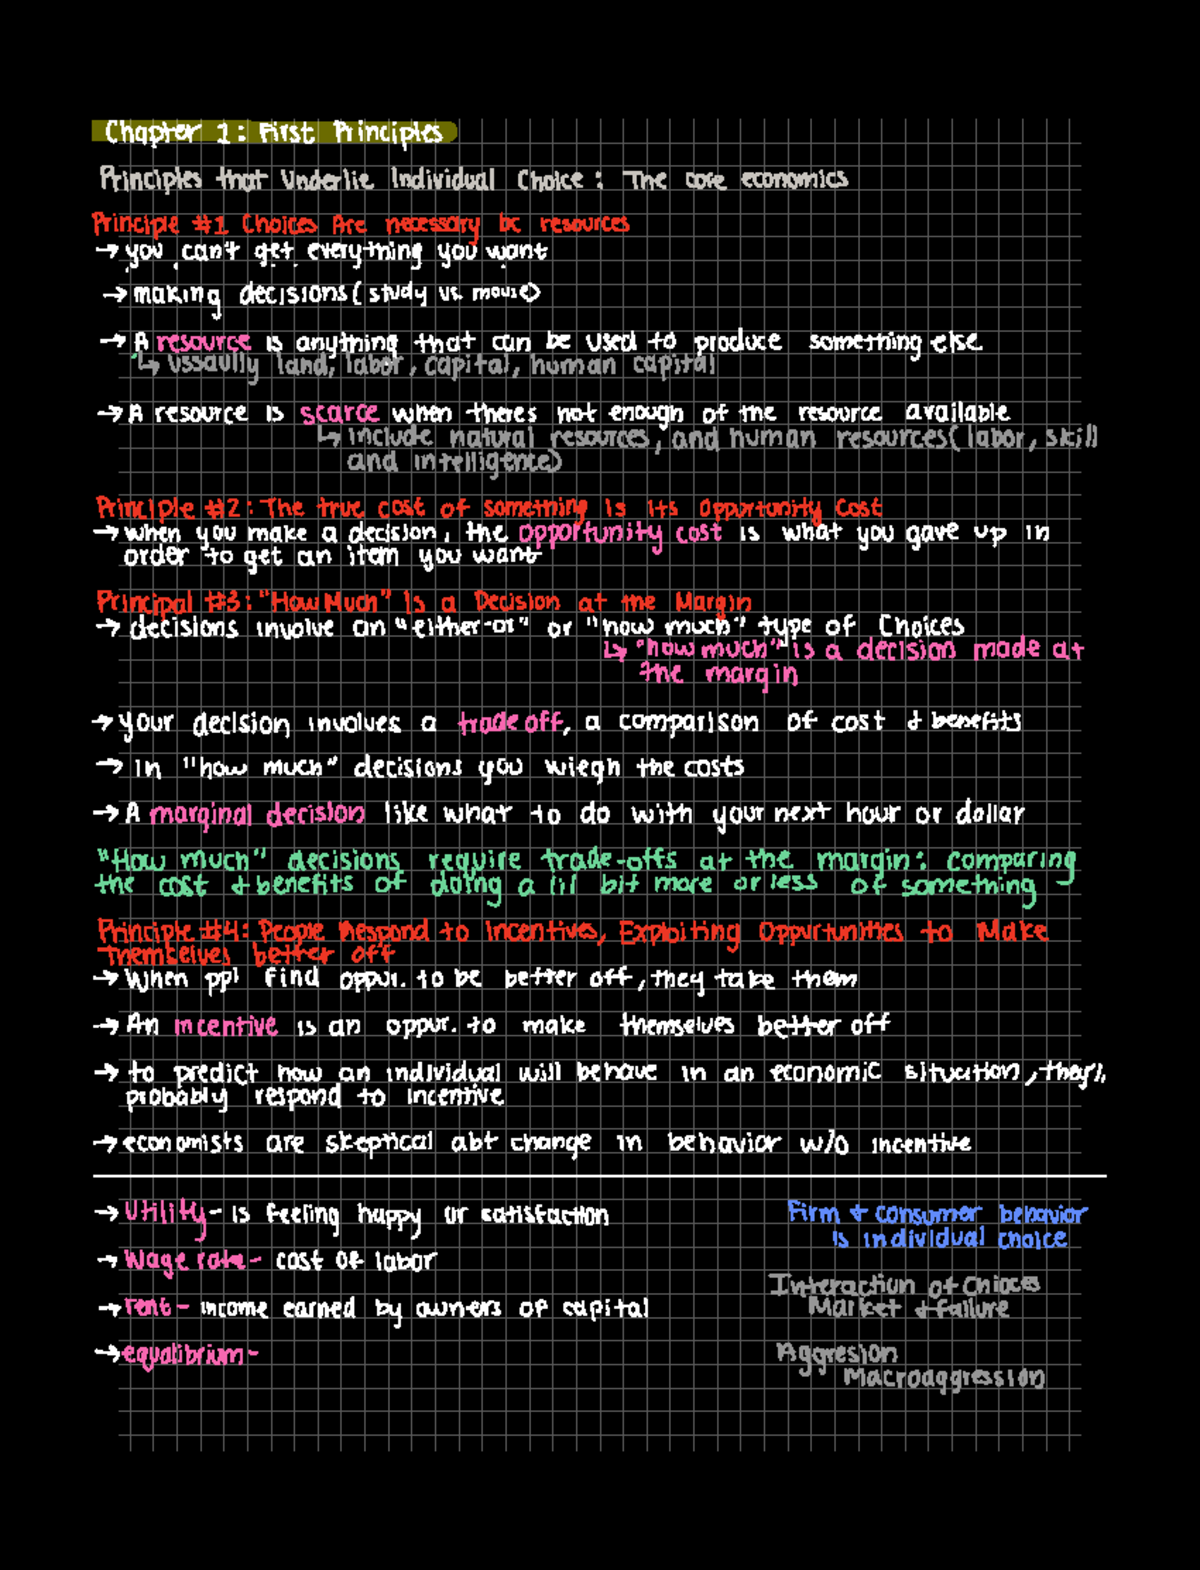 Chapter 1: First Principles
Principles that Underlie Individual Choice: The core economics
Principle #1 Choices Are necessary bc resources
→ you can't get everything you want
→ making decisions (study vs. movie)
→ A resource is anything that can be used to produce something else
↳ ussaully land, labor, capital, human capital
→ A resource is scarce when theres not enough of the resource available
↳ include natural resources, and human resources (labor, skill
and intelligence)
Principle #2: The true cost of something Is its Opportunity Cost
→ when you make a decision, the opportunity cost is what you gave up in
order to get an item you want
Principal #3: "How Much" Is a Decision at the Margin
→ decisions involve an "either-or" or "how much" type of Choices
↳ "how much" is a decision made at
the margin
→ your decision involves a trade off, a comparison of cost & benefits
→ In "how much" decisions you wiegh the costs
→ A marginal decision like what to do with your next hour or dollar
"How much" decisions require trade-offs at the margin: comparing
the cost & benefits of doing a lil bit more or less of something
Principle #4: People Respond to Incentives, Exploiting Oppurtunities to Make
Themselves better off
→ When ppl find oppur. to be better off, they take them
→ An incentive is an oppur. to make themselves better off
→ to predict how an individual will behave in an economic situation, they'll
probably respond to incentive
→ economists are skeptical abt change in behavior w/o incentive
→ Utility - is feeling happy or satisfaction
Firm & consumer behavior
is individual choice
→ Wage rate - cost of labor
Interaction of Chioces
Market & failure
→ rent - income earned by owners of capital
→ equalibrium -
Aggresion
Macroaggression